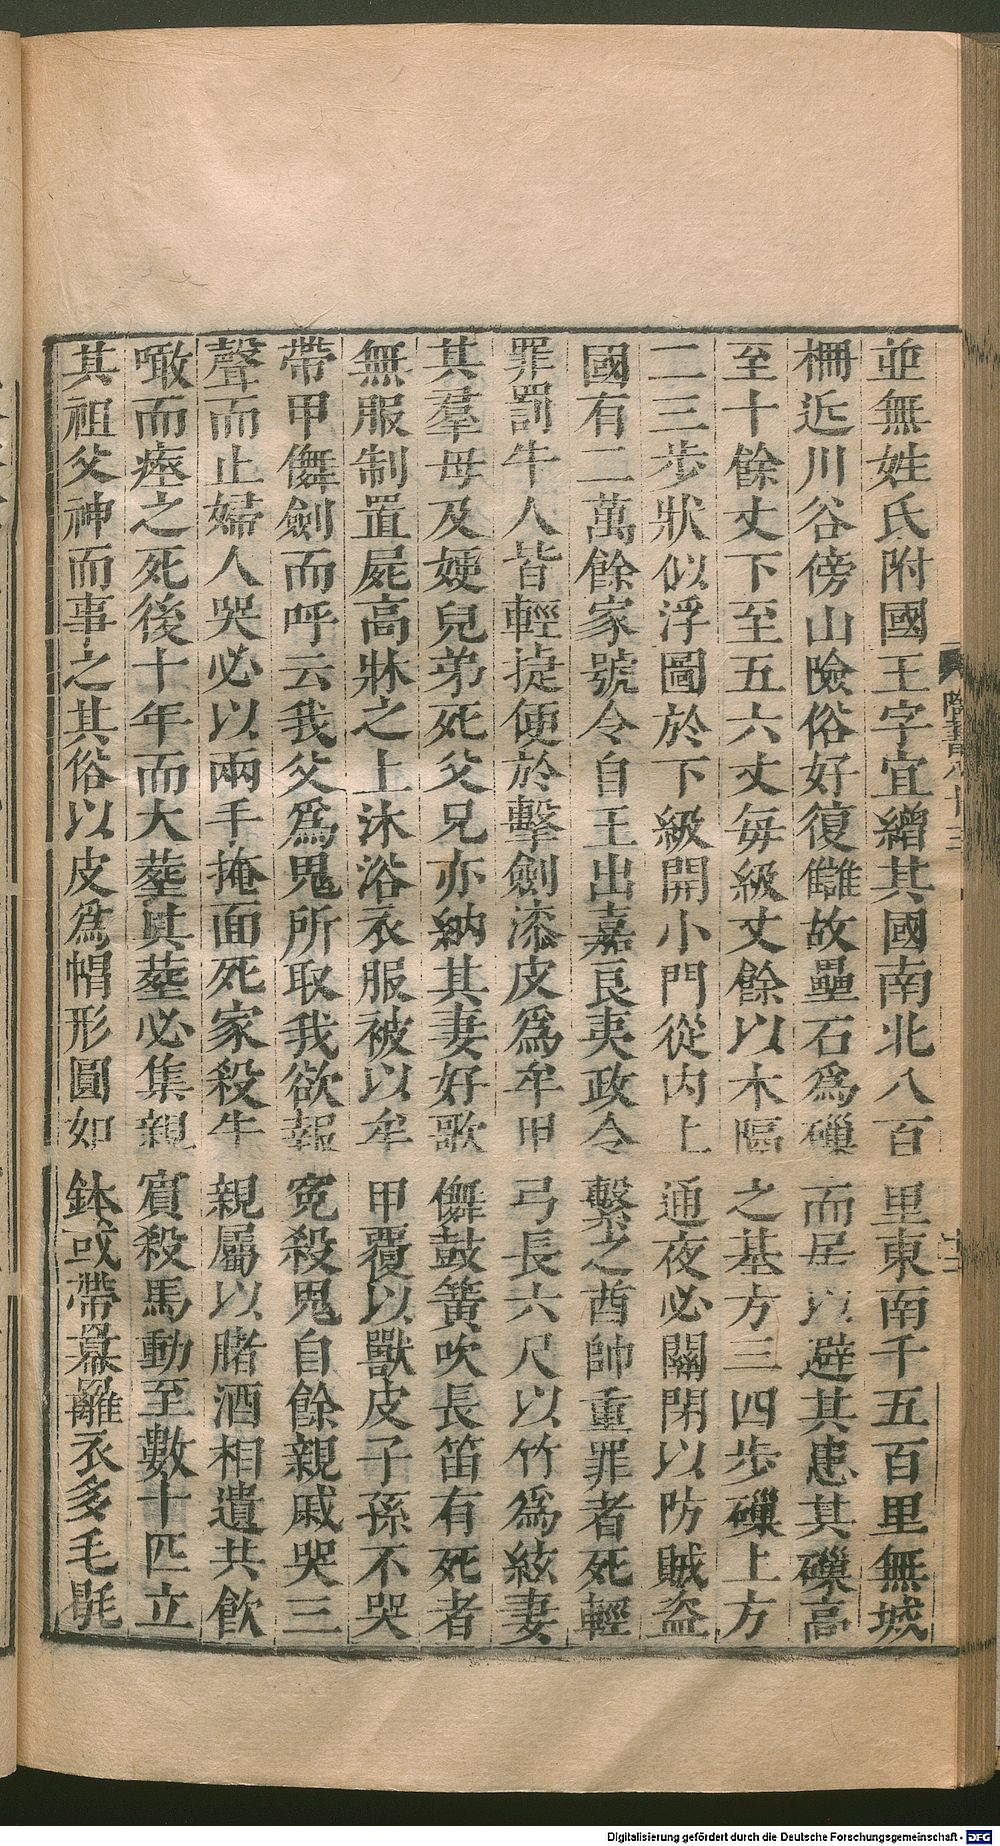 並無姓氏附國王字宜繒其國南北八百里東南千五百里無城
柵近川谷傍山險俗好復讎故壘石爲𥕢而居以避其患其𥕢高
至十餘丈下至五六丈每級丈餘以木隔之基方三四步𥕢上方
二三步狀似浮圖於下級開小門從内上通夜必關閉以防賊盜
國有二萬餘家號令自王出嘉良夷政令繫之酋帥重罪者死輕
罪罰牛人皆輕捷便於擊劍漆皮爲牟甲弓長六尺以竹爲絃妻
其羣母及嫂兒弟死父兄亦納其妻好歌儛鼓簧吹長笛有死者
無服制置屍高牀之上沐浴衣服被以牟甲覆以獸皮子孫不哭
帶甲儛劍而呼云我父爲鬼所取我欲報寃殺鬼自餘親戚哭三
聲而止婦人哭必以兩手掩面死家殺牛親屬以豬酒相遺共飲
噉而瘞之死後十年而大葬其葬必集親賓殺馬動至數十匹立
其祖父神而事之其俗以皮爲帽形圓如鉢或帶羃䍦衣多毛毼
Digitalisierung gefördert durch die Deutsche Forschungsgemeinschaft - DFG